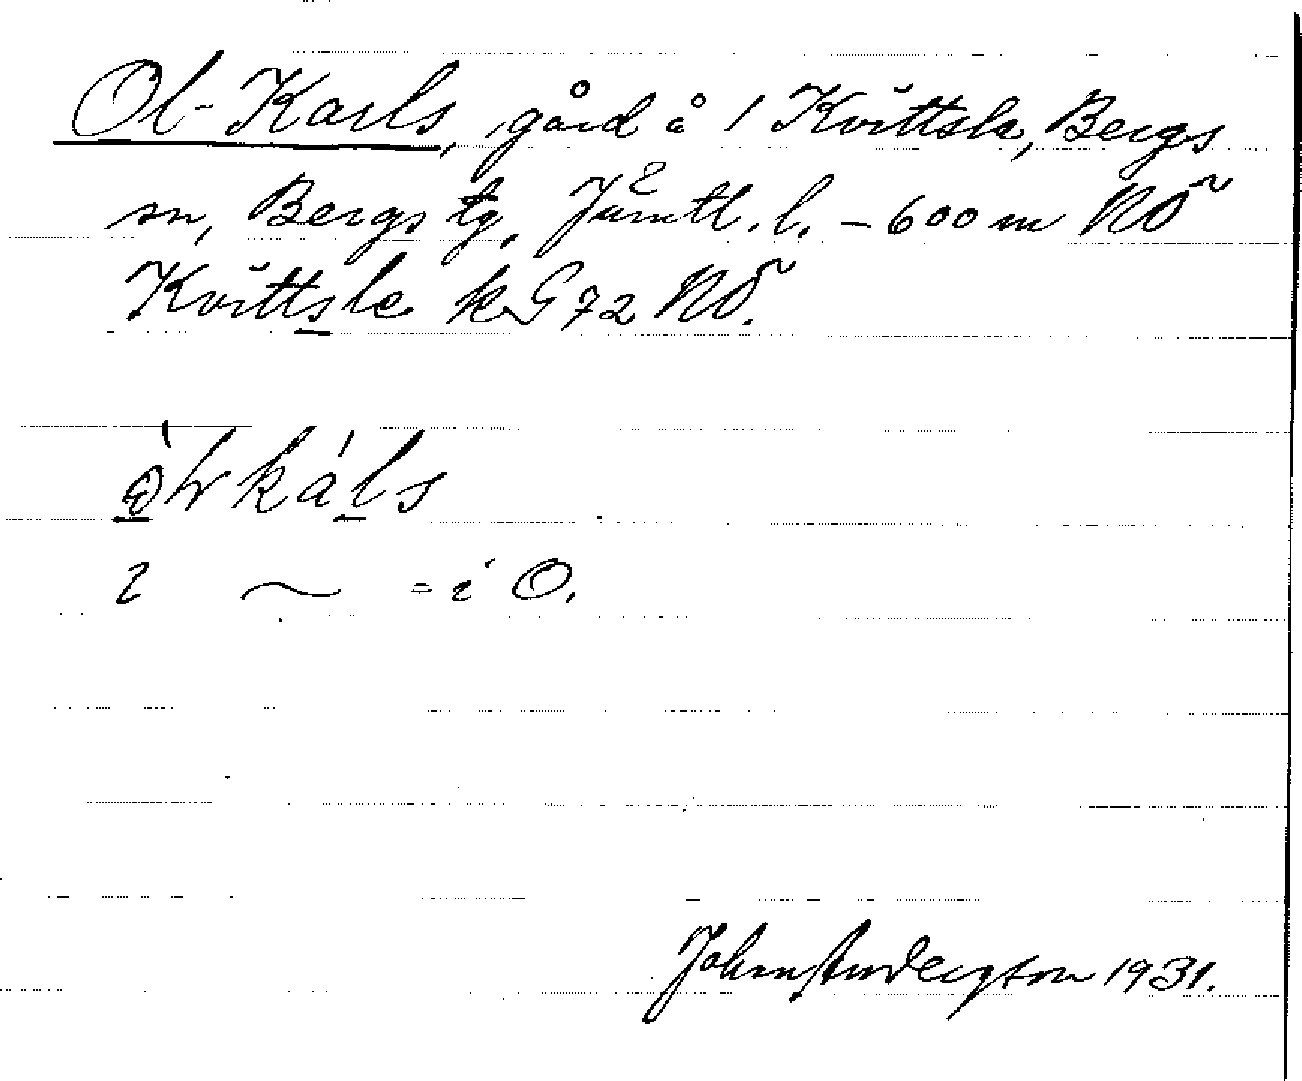 Ol-Karls, gård å 1 Kvittsle, Bergs
sn, Bergs tg, Jämtl. l. – 600 m NÖ
Kvittsle kG 72 NÖ.
kals
i ~ = i O.
John Anderzson 1931.